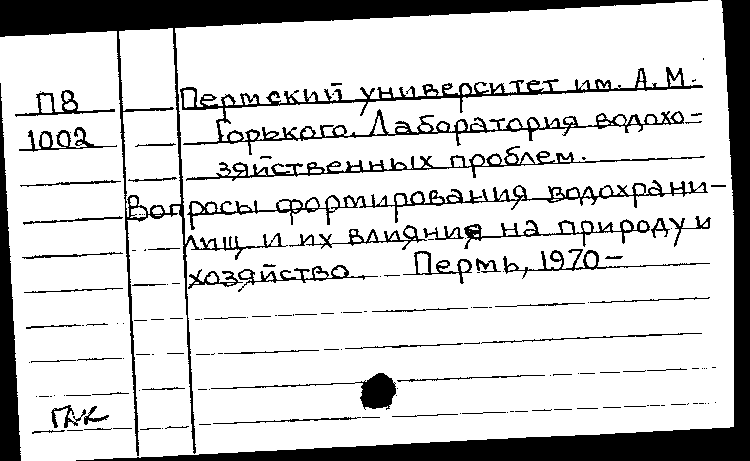 П8 Пермский университет им. А.М.
1002 Горького. Лаборатория водохо-
зяйственных проблем.
Вопросы формирования водохрани-
лищ и их влияние на природу и
хозяйство. Пермь, 1970-
ГАК